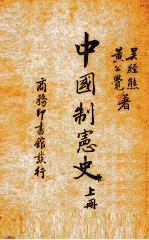 吴經熊
黃公覺 著
中國制憲史 上冊
商務印書館發行